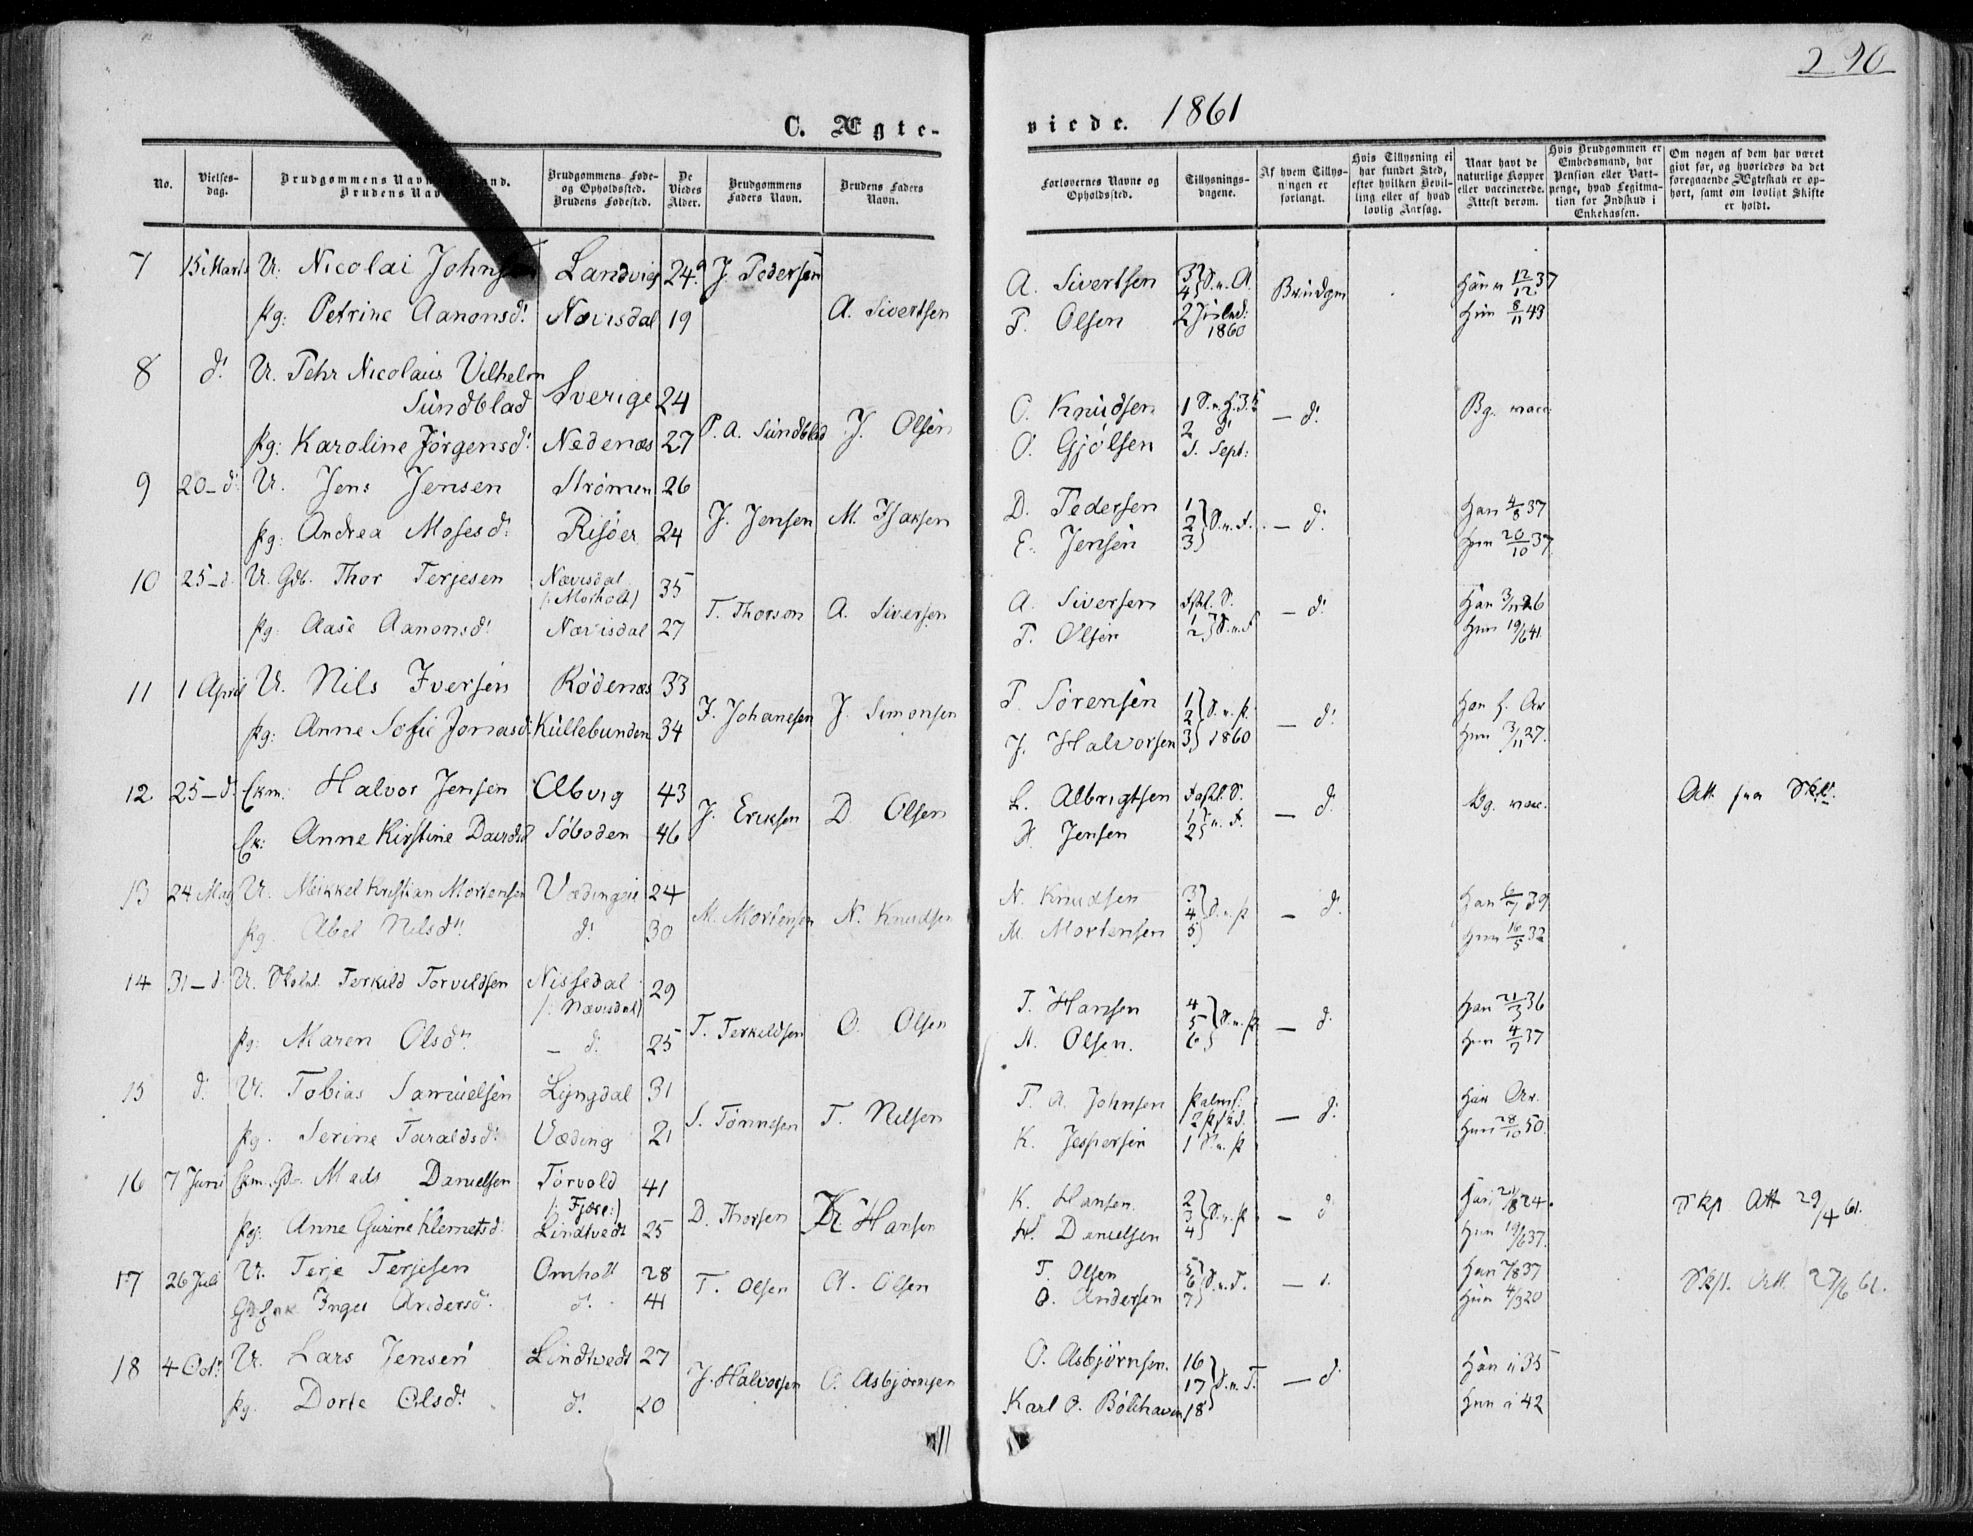 290
C. Ægteviede. 1861
No. Vielsesdag. Brudens Navn Brudgommens Føde- og Opholdssted. Brudens Fødested. De Viedes Alder. Brudgommens Faders Navn. Brudens Faders Navn. Forlovernes Navne og Opholdssted. Tillysningsdagene. Af hvem Tillysningen er forlangt. Hvis Tillysning ei har fundet Sted, efter hvilken Bevilling eller af hvad lovlig Aarsag. Naar havt de naturlige Kopper eller vaccinerede. Attest derom. Hvis Brudgommen er Embedsmand, har Pension eller Vartpenge, hvad Legitimation for Indskud i Enkekassen. Om nogen af dem har været givt for, og hvorledes da det foregaaende Ægteskab er ophørt, samt om lovligt Skifte er holdt.
7 15 Marts U. Nicolai Landvig 24 J. Pedersen A. Sivertsen 3 4 S. n. Brudgm Han 12/12 37
Pg: Petrine Aanonsd. Nævisdal 19 A. Sivertsen T. Olsen 2 1860 Hun 8/11 43
8 d. U. Pehr Nicolaus Vilhelm
Sundblad Sverige 24 P. A. Sundblad J. Olsen O. Knudsen 1 S. n. — d. Bg. vacc.
Pg: Karoline Jörgensd. Nedenæs 27 O. Gjølsen 2 d. S. Sept:
9 20 – d. U. Jens Jensen Strømmen 26 J. Jensen M. D. Pedersen 1 2 3 S. n. — d. Han 4/8 37
Pg: Andrea Mosesd. Risøer 24 E. Jensen Hun 20/10 37
10 25 – d. U. Gdb. Thor Terjesen Nævisdal (: Morholt) 35 T. Thorson A. Siversen A. Siversen — d. Han
Pg. Aase Aanonsd. Nævisdal 27 T. Olsen 1 2 S. n. Hun 19/6 41
11 1 April U. Nils Iversen Rödenæs 33 I. Johanesen J. Simonsen T. Sörensen 1 2 3 S. n. P. 1860 — d. Han
Pg: Anne Sofie Jonasd. Küllebunden 34 J. Halvorsen Hun 3/11 27.
12 25 – d. Ekm. Halvor Jensen 43 J. Eriksen D. Olsen L. Albrigtsen — d. Bg. vacc. Att. fra
Ek: Anne Kirstine Davidsd. Söboden 46 Jensen 1 2
13 24 Mai U. Mikkel Kristian Mortensen Vædingen 24 M. Mortensen N. Knudsen N. Knudsen 3 4 5 S. n. P — d. Han 6/7 39
Pg. Abel Nilsd. d. 30 M. Mortensen Hun 16/5 32
14 31 – d. U. Terkild Torvildsen Nissedal (: Nævisdal) 29 T. Terkildsen O. Olsen T. Hansen 4 5 6 S. n. P — d. Han 21/3 36
Pg: Maren Olsd. — d. 25 N. Olsen. Hun 4/7 37
15 d. U. Tobias Samuelsen Lyngdal 31 S. Tönnesen T. Nilsen T. A. Johnsen Palmes: — d. Han Ar.
Pg. Serine Taraldsd. Væding 21 K. Jespersen 1 S. n. P Hun 28/10 50.
16 7 Juni Ekm. Mads Danielsen Törvold (: Fjære:) 41 D. Thorsen K. Hansen K. Hansen. 2 3 4 S. n. P — d Han
Pg: Anne Gurine Klemetsd. Lindtvedt 25 H. Danielsen Hun 19/6 37. Skp Att 29/4 61.
17 26 Juli U. Terje Terjesen Omholt 28 T. Olsen A. Olsen T. Olsen 5 6 7 S. n. T. — d. Han 7/8 37 Skp. Att. 27/6 61.
Inger Andersd. d. 41 O. Andersen Hun 4/3 20
18 4 Oct. U. Lars Jensen Lindtvedt 27 J. Halvorsen O. Asbjörnsen O. Asbjørnsen. 16 17 18 S. n. T. — d. Han i 35
Pg. Dorte Olsd. d. 20 Karl O. Bölihavn Hun i 42